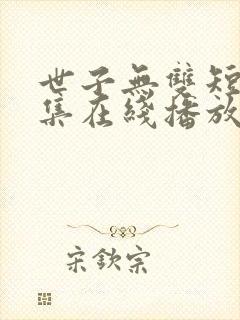 世子無雙短
集在綫播放
宋欽宗